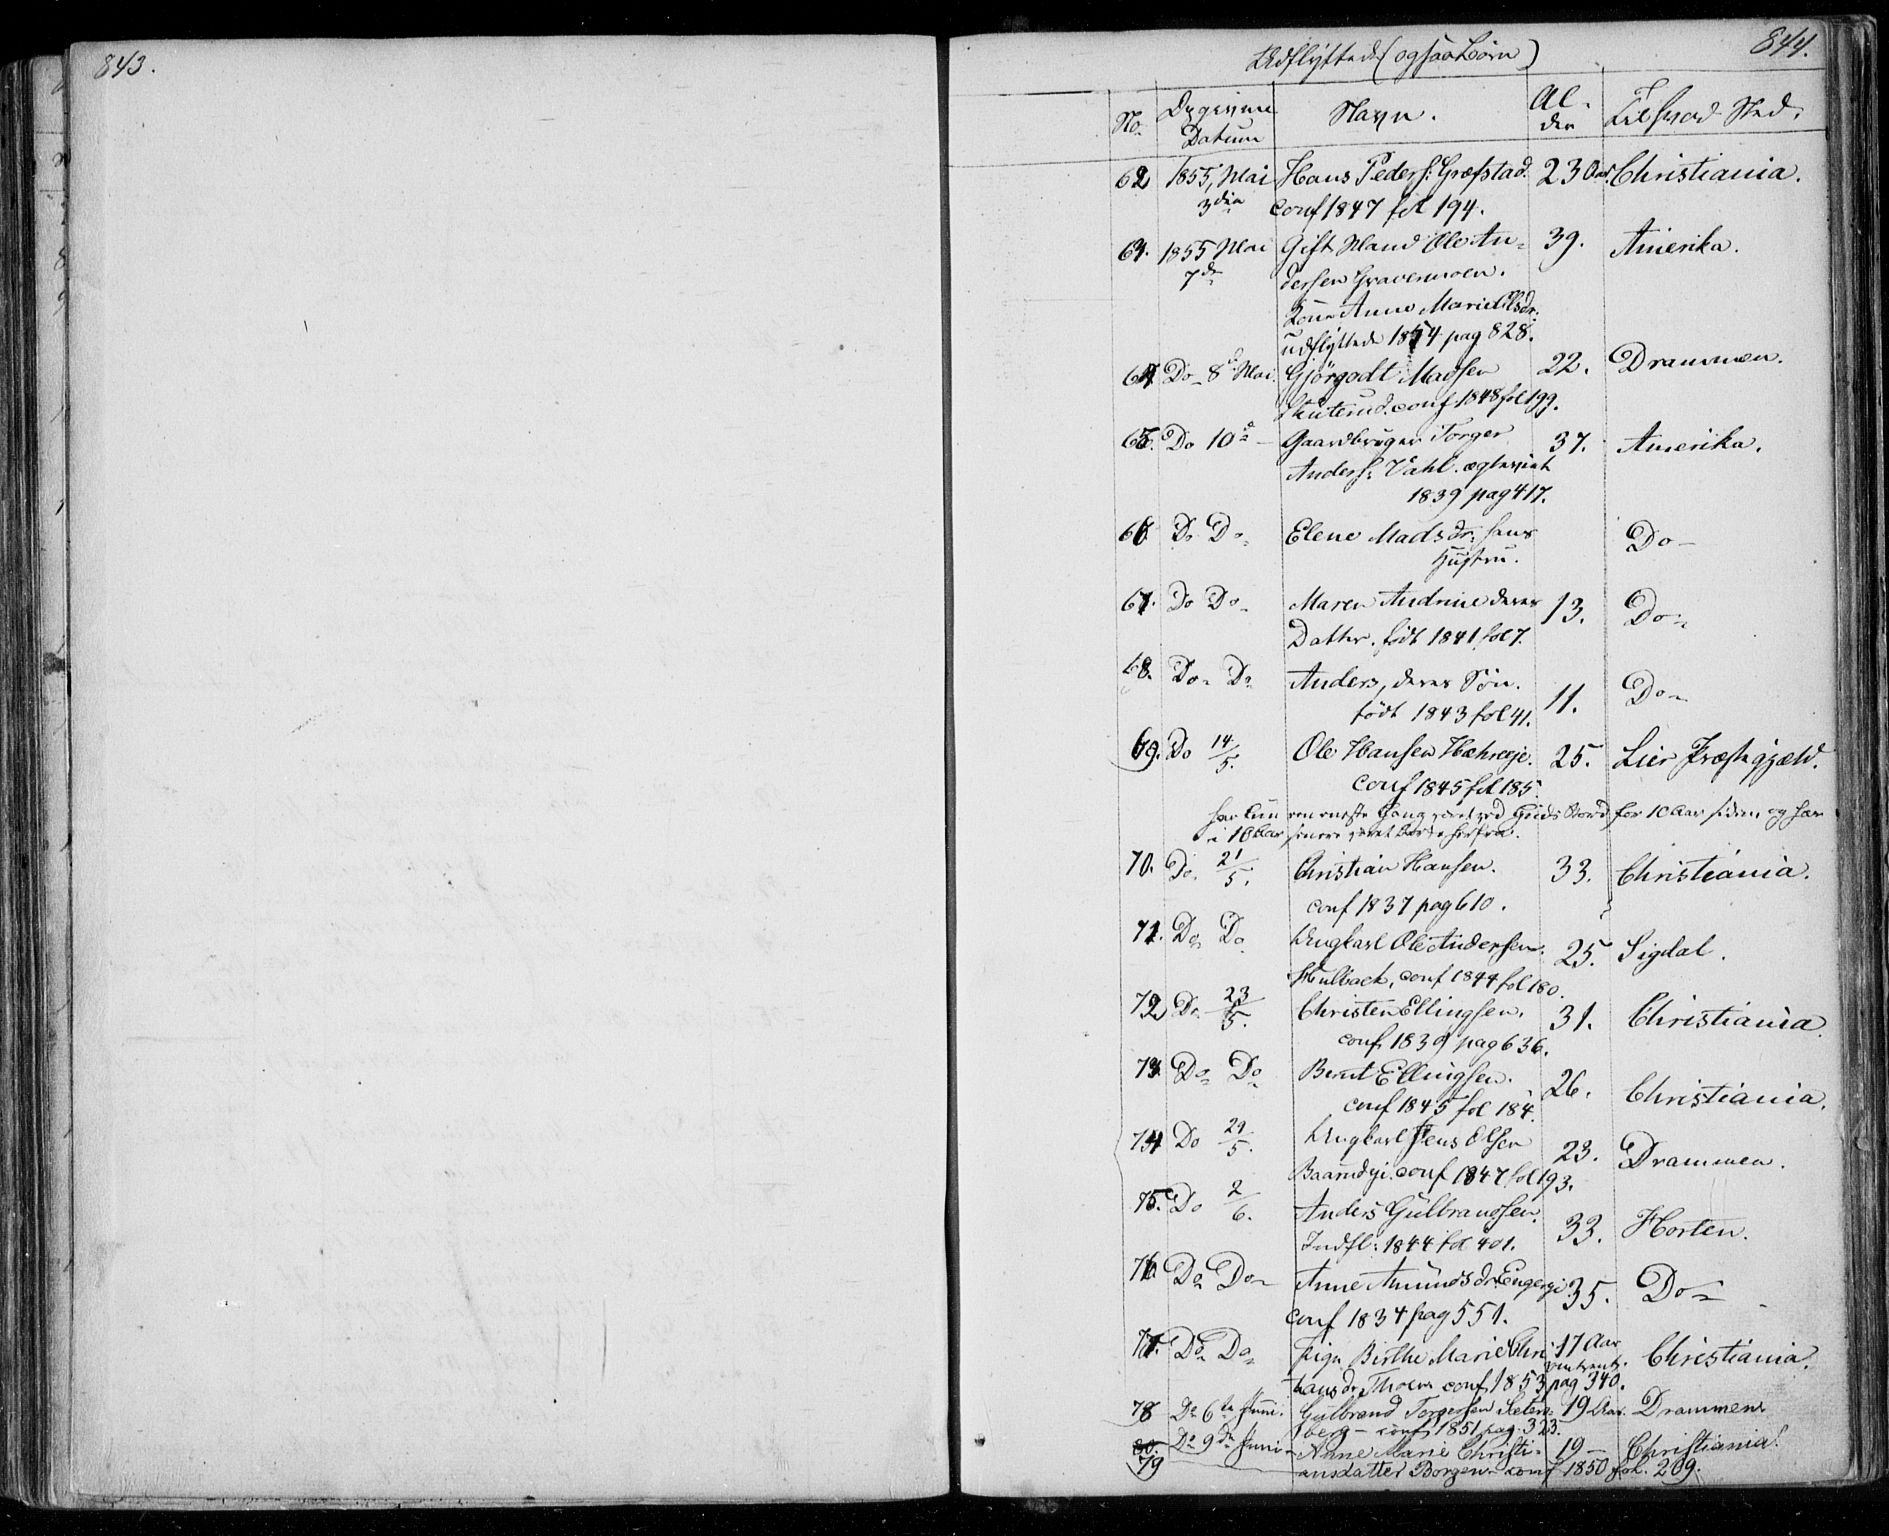 843.
844.
Udflyttede (ogsaa Børn)
No. Opgivne Datum Navn. Al-der Til hvad Sted.
62 1855, Mai Hans Peders: Græfstad. 23 Aar. Christiania.
3die conf 1847 fol 194.
63. 1855 Mai Gift Mand Ole An- 39. Amerika.
7de dersen Gravermoen.
Kone Anne Marie Olsdr.
udflyttede 1854 pag 828.
64 Do 8de Mai Gjørgodt Madsen 22. Drammen.
Skuterud. conf 1848 fol 199.
65. Do 10de Gaardbruger Torger 37. Amerika.
Anders: Vahl. ægteviet
1839 pag 417.
66 Do Do Elene Madsdr: hans Do
Hustru.
67. Do Do Maren Andrine deres 13. Do
Datter. født 1841 fol 7.
68. Do Do Anders, deres Søn. 11. Do
født 1843 fol 41.
69. Do 14/5. Ole Hansen 25. Lier Præstegjæld.
conf 1845 fol 185.
har kun een eneste Gang været ved Guds Bord for 10 Aar siden, og har
i 10 Aar været borte herfra.
70. Do 21/5. Christian Hansen. 33. Christiania.
conf 1837 pag 610.
71. Do Do Ungkarl Ole Andersen. 25. Sigdal.
conf 1844 fol 180.
72 Do 23/5. Christen Ellingsen. 31. Christiania
conf 1839 pag 636.
73. Do Do Bernt Ellingsen. 26. Christiania.
conf 1845 fol 184.
74 Do 29/5. Ungkarl Jens Olsen 23. Drammen.
conf 1847 fol 193.
75. Do 2/6. Anders Gulbrandsen. 33. Horten.
Indfl: 1844 fol 401.
76. Do Do Anne Amundsdr. Engerje 35. Do
conf 1834 pag 551.
77. Do Do Pige Birthe Marie Chri- 17 Aar Christiania.
omtrent.
tiansdr Thoen conf 1853 pag 340.
78 Do 6te Juni. Gulbrand Torgersen Seters- 19 Aar. Drammen
berg - conf 1851 pag 323.
80. Do 9de Juni Anne Marie Christi- 19 - Christiania.
79 ansdatter Borgen - conf 1850 fol. 209.